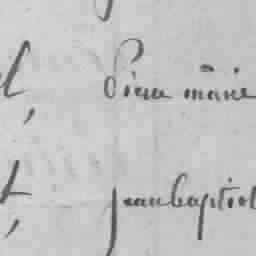 l, Pierre marie
t, jean baptist